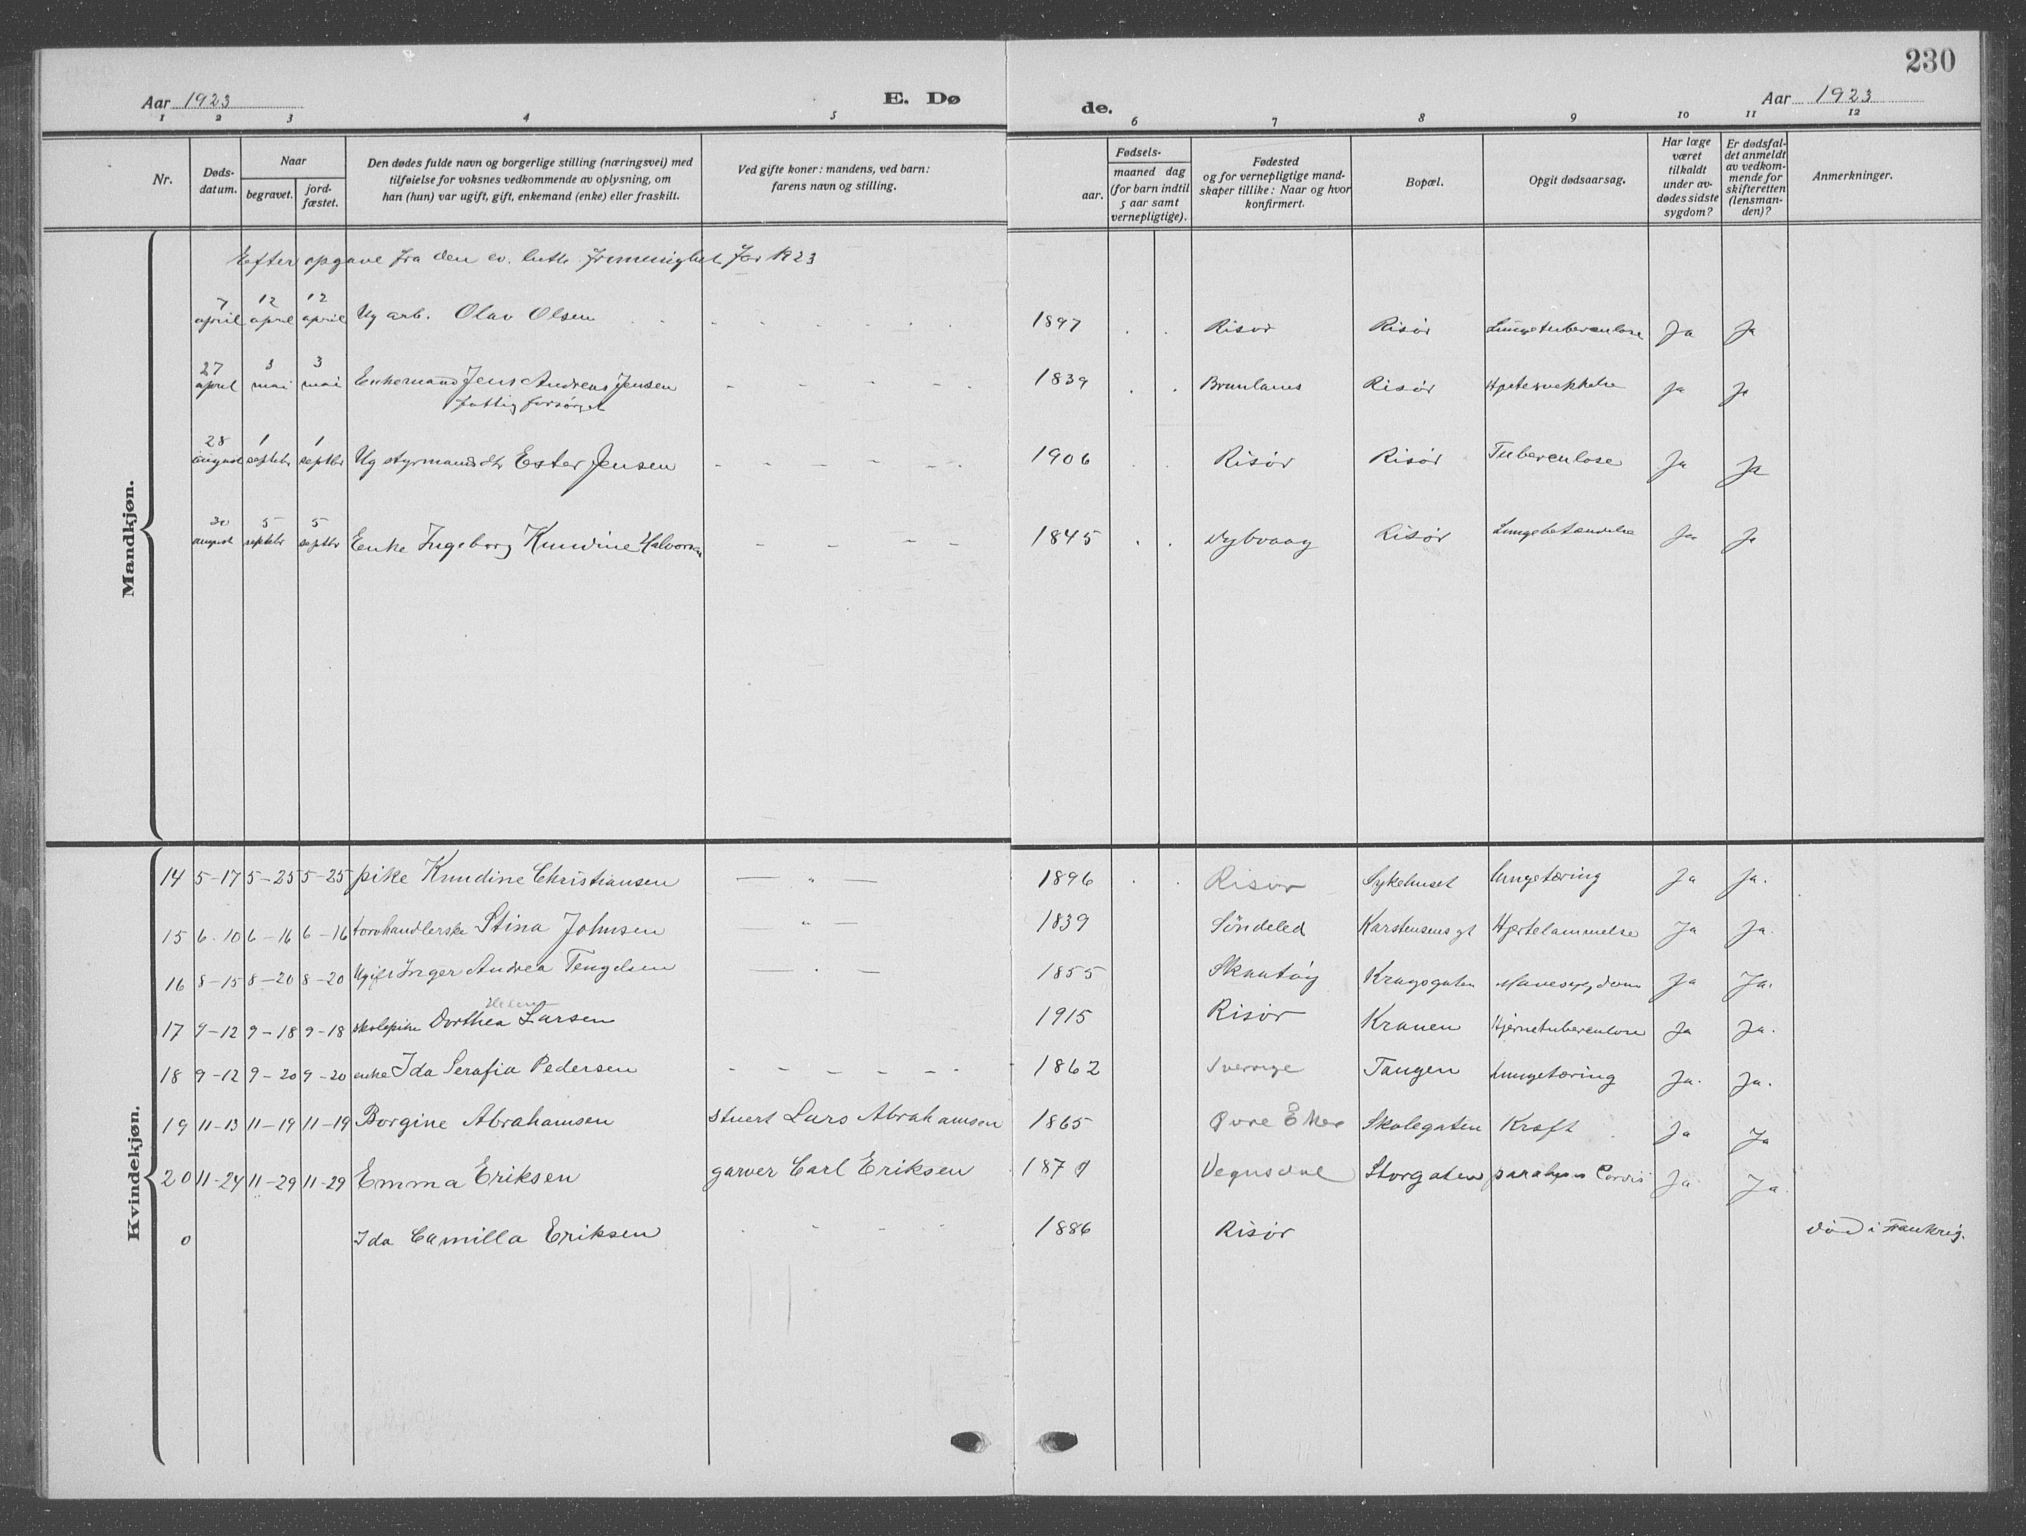 230
Aar 1923
E. Dø
de.
Aar 1923
1 2 3 4 5 6 7 8 9 10 11 12
Nr.
Døds-
datum.
Naar
begravet.
jord-
fæstet.
Den dødes fulde navn og borgerlige stilling (næringsvei) med
tilføielse for voksnes vedkommende av oplysning, om
han (hun) var ugift, gift, enkemand (enke) eller fraskilt.
Ved gifte koner: mandens, ved barn:
farens navn og stilling.
Fødsels-
aar.
maaned dag
(for barn indtil
5 aar samt
vernepligtige).
Fødested
og for vernepligtige mand-
skaper tillike: Naar og hvor
konfirmert.
Bopæl.
Opgit dødsaarsag.
Har læge
været
tilkaldt
under av-
dødes sidste
sygdom?
Er dødsfal-
det anmeldt
av vedkom-
mende for
skifteretten
(lensman-
den)?
Anmerkninger.
Mandkjøn.
Efter opgave fra den ev. luth. frimenighet for 1923
7 april 12 april 12 april Ug arb. Olav Olsen 1897 Risør Risør Lungetuberculose Ja Ja
27 april 3 mai 3 mai Enkemand Jens Andreas Jensen 1839 Brunlanes Risør Ja Ja
fattigforsørget
28 august 1 septbr 1 septbr Ug styrmandsdtr Ester Jensen 1906 Risør Risør Tuberculose Ja Ja
30 august 5 septbr 5 septbr Enke Ingeborg Knudine Halvorsen 1845 Dybvaag Risør Lungebetændelse Ja Ja
Kvindekjøn.
14 5-17 5-25 5-25 pike Knudine Christiansen — " — 1896 Risør Sykehuset Lungetæring Ja Ja.
15 6-10 6-16 6-16 torvhandlerske Stina Johnsen — " — 1839 Søndeled Karstensensgt Hjertelammelse Ja Ja.
16 8-15 8-20 8-20 Ugift Inger Andrea Tengelsen — " — 1855 Skaatøy Kragsgaten Mavesygdom Ja Ja.
Helene
17 9-12 9-18 9-18 skolepike Dorthea Larsen 1915 Risør Kranen Hjernetuberculose Ja Ja.
18 9-12 9-20 9-20 enke Ida Serafia Pedersen 1862 Sverige Tangen Lungetæring Ja. Ja.
19 11-13 11-19 11-19 Borgine Abrahamsen stuert Lars Abrahamsen 1865 Øvre Eker Skolegaten Kræft Ja Ja
20 11-24 11-29 11-29 Emma Eriksen garver Carl Eriksen Vegusdal Storgaten Ja Ja.
0 Ida Camilla Eriksen 1886 Risør død i Frankrig.